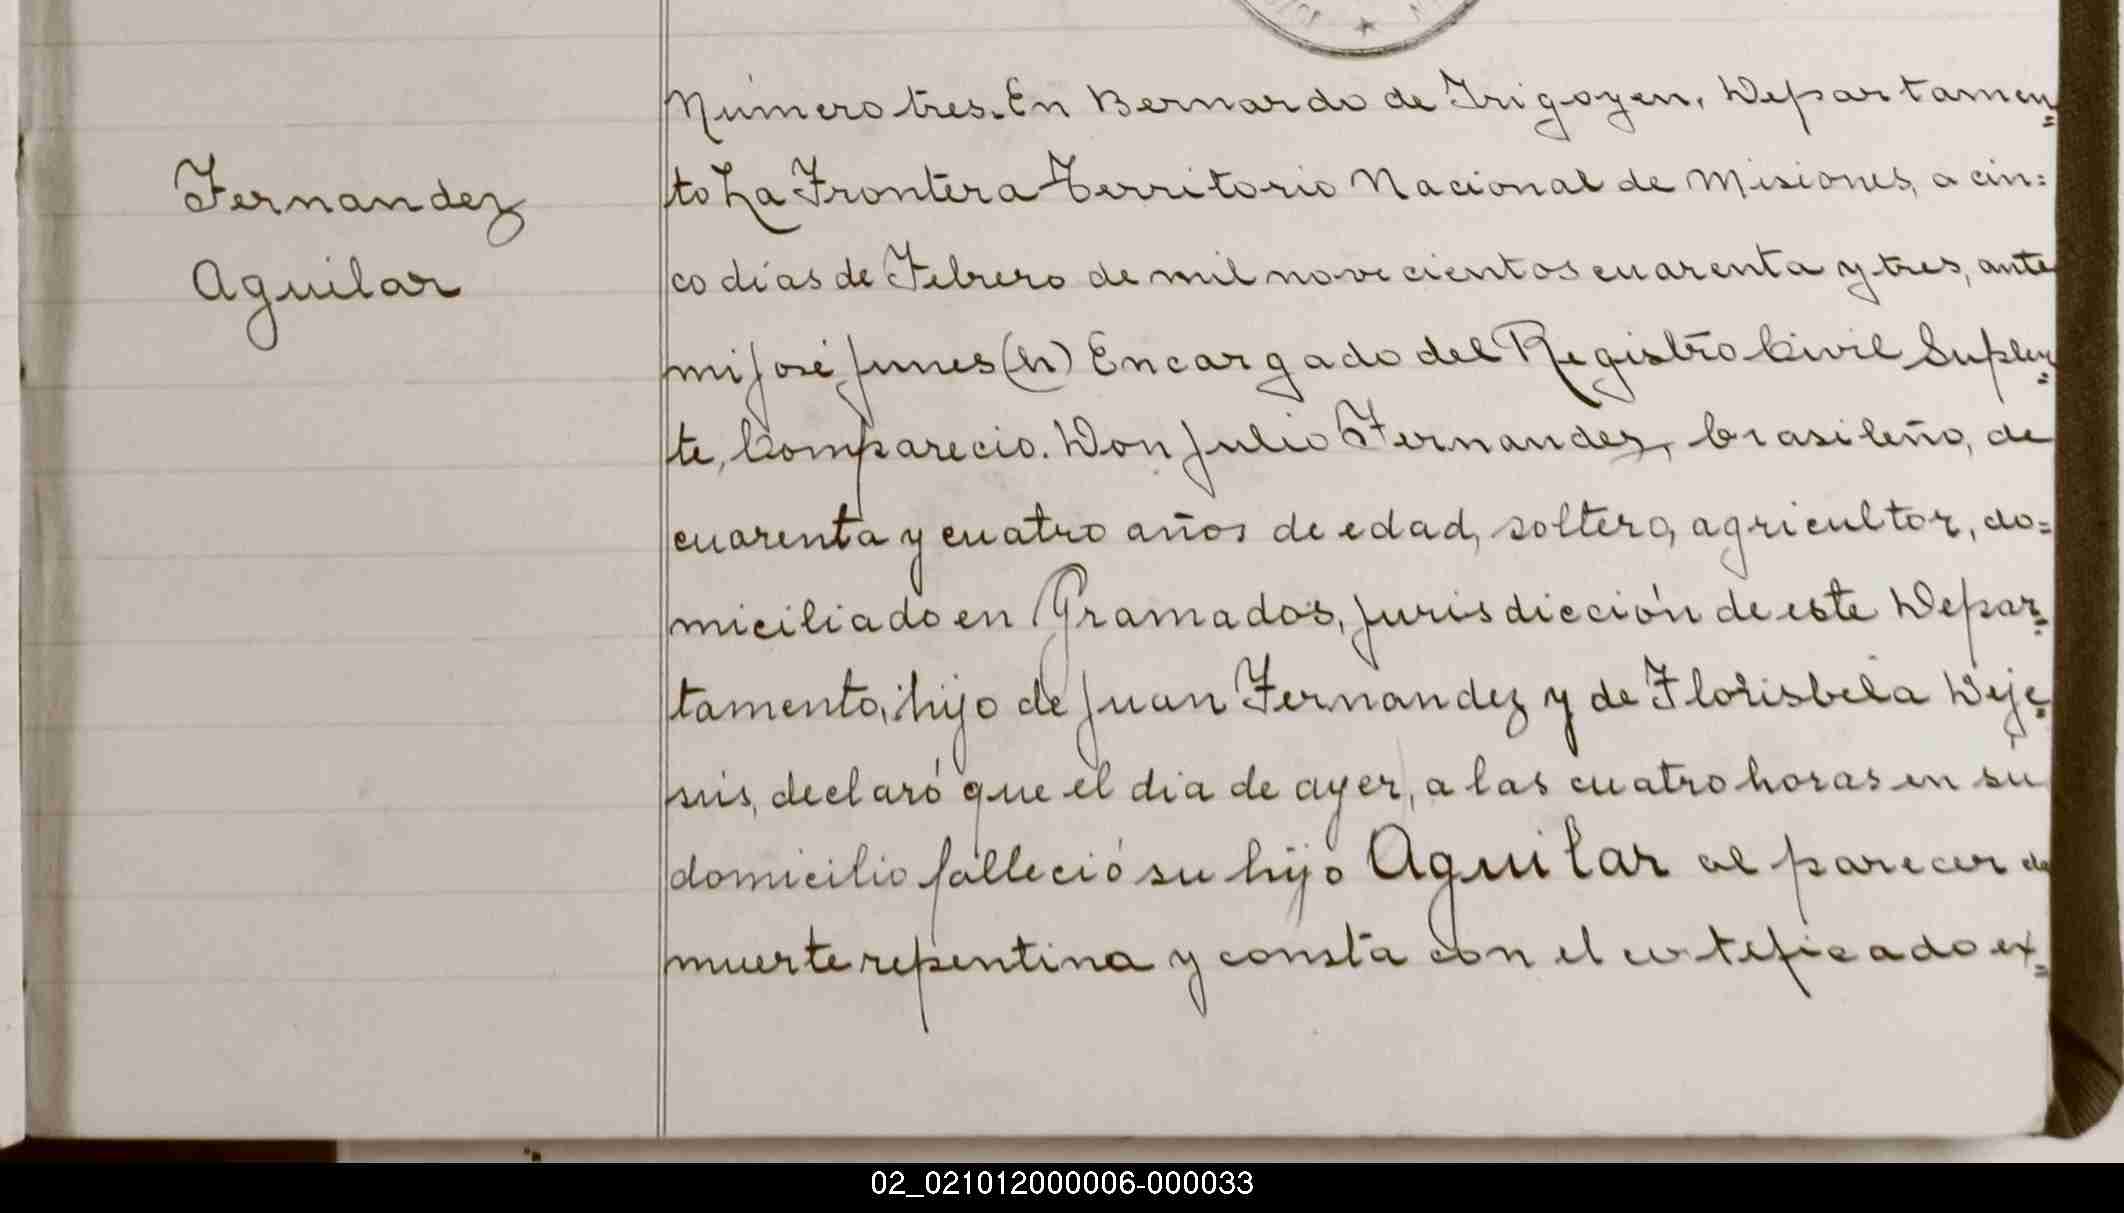 Fernandez
Aguilar
Número tres. En Bernardo de Irigoyen, Departamen=
to La Frontera Territorio Nacional de Misiones, a cin=
co días de Febrero de mil novecientos cuarenta y tres, ante
mi José Junes (h) Encargado del Registro Civil Suplen=
te, Comparecio. Don Julio Fernandez, brasileño, de
cuarenta y cuatro años de edad, soltero, agricultor, do=
miciliado en Gramados, jurisdicción de este Depar=
tamento, hijo de Juan Fernandez y de Florisbela De Je=
sus, declaró que el dia de ayer, a las cuatro horas en su
domicilio falleció su hijo Aguilar al parecer de
muerte repentina y consta con el certeficado ex=
02_021012000006-000033